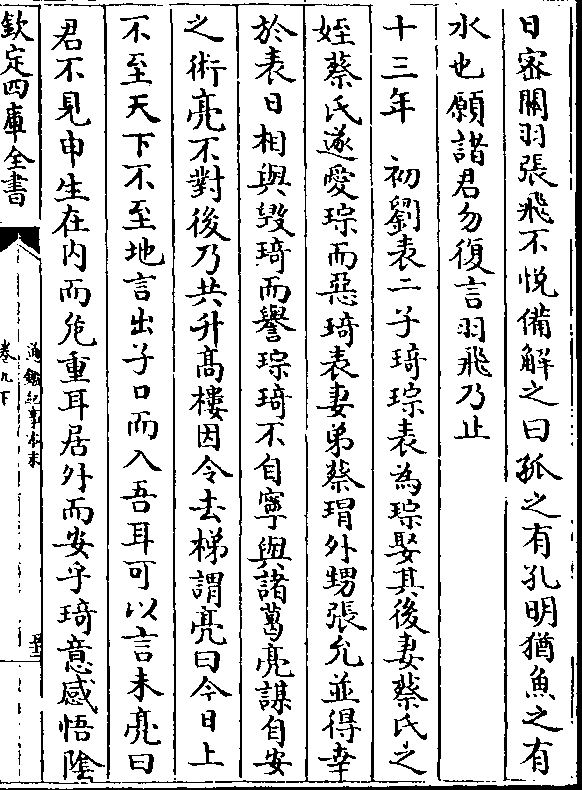 日密關羽張飛不悦備解之曰孤之有孔明猶魚之有
水也願諸君勿復言羽飛乃止
十三年　初劉表二子琦琮表為琮娶其後妻蔡氏之
姪蔡氏遂愛琮而惡琦表妻弟蔡瑁外甥張允並得幸
於表日相與毁琦而譽琮琦不自寧與諸葛亮謀自安
之術亮不對後乃共升髙樓因令去梯謂亮曰今日上
不至天下不至地言出子口而入吾耳可以言未亮曰
君不見申生在内而危重耳居外而安乎琦意感悟隂
欽定四庫全書
通鑑紀事本末
卷九下